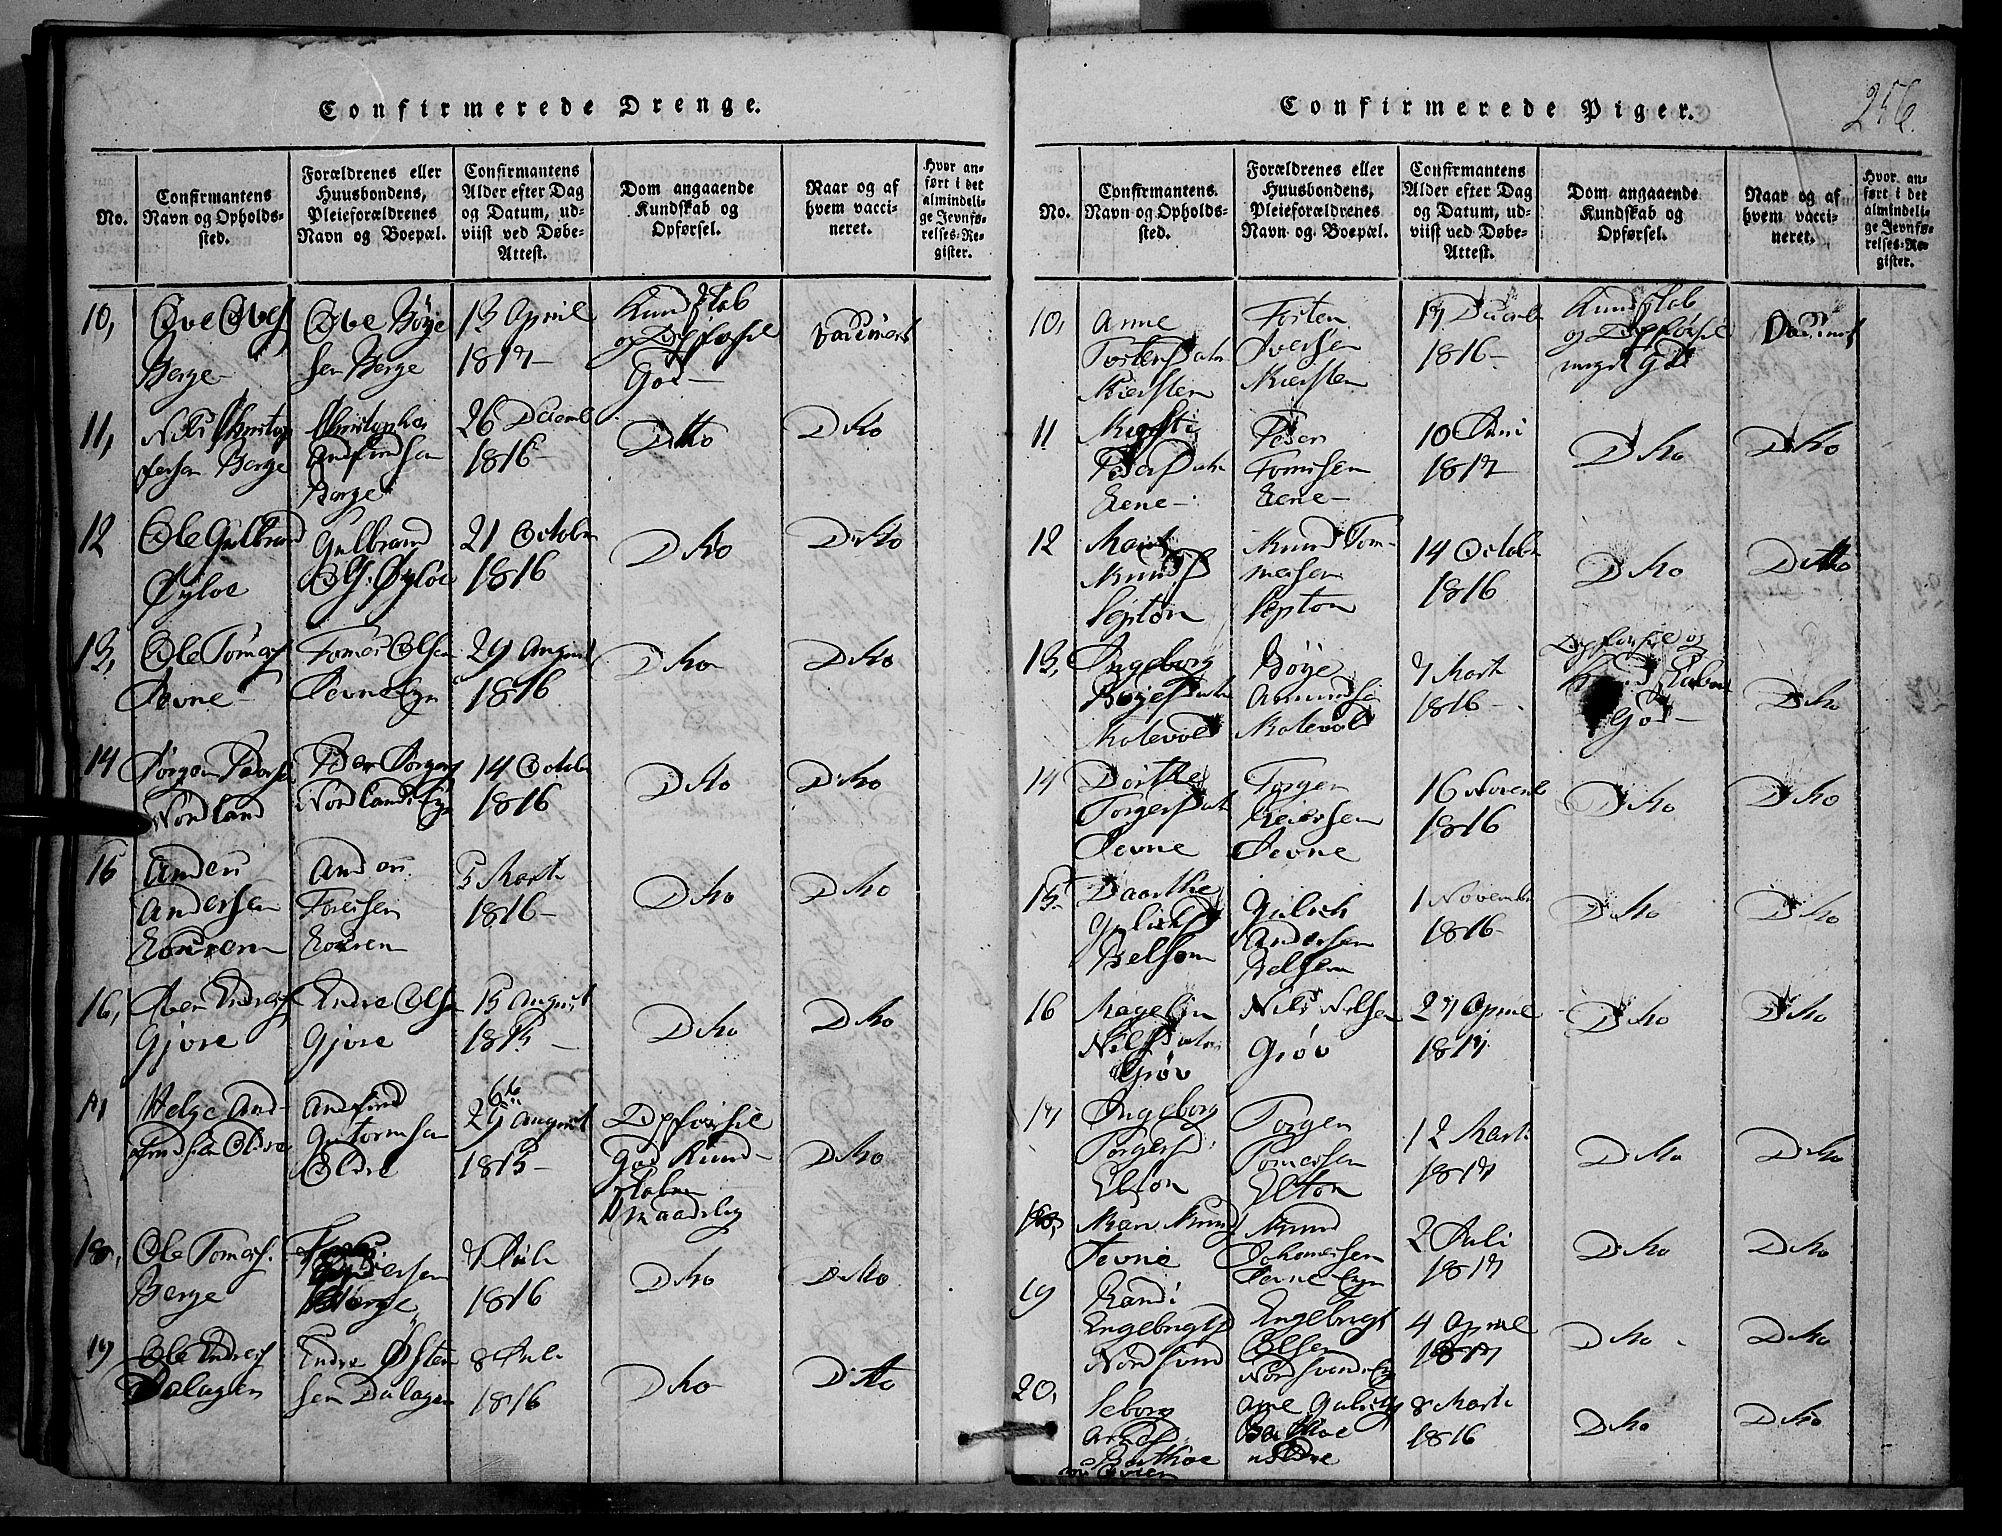 Confirmerede Drenge.
No.
Confirmantens
Navn og Opholds-
sted.
Forældrenes eller
Huusbondens,
Pleieforældrenes
Navn og Boepæl.
Confirmantens
Alder efter Dag
og Datum, ud-
viist ved Døbe-
Attest.
Dom angaaende
Kundskab og
Opførsel.
Naar og af
hvem vacci-
neret.
Hvor an-
ført i det
almindeli-
ge Jevnfø-
relses-Re-
gister.
10,
Ove Oves
Berge
Ove Bøye
sen Berge
13 April
1817
Kundskab
og Opførsel
God
vaccinert
11,
Nils Christop
fersen Berge
Andfindsen
Berge
26 Decemb
1816
Ditto
Ditto
12
Ole Gulbrand
Øyloe
Gulbrand
Øyloe
21 October
1816
Ditto
Ditto
13,
Ole Tomas
Jevne
Tomes Olsen
Jevne Eyn
29 August
1816
Ditto
Ditto
14
Jørgen Pedersen
Nordland
Peder Jørgens
Nordlands Eyn
14 Octob
1816
Ditto
Ditto
15
Anders
Andersen
Anders
5 Marti
1816
Ditto
Ditto
16,
Iver Endres
Gjvre
Endre Olsen
Gjvre
15 August
1815
Ditto
Ditto
17
Helge And-
findsen Oldre
Andfind
Guttormsen
Oldre
29 August
1815
Opførsel
God Kund-
skaben
Maadelig
Ditto
18,
Ole Tomes.
Berge
Berge
Juli
1816
Ditto
Ditto
19
Ole Endres
Dalagen
Endre Østen
sen Dalagen
8 Juli
1816
Ditto
Ditto
Confirmerede Piger.
256.
No.
Confirmantens.
Navn og Opholds-
sted.
Forældrenes eller
Huusbondens,
Pleieforældrenes
Navn og Boepæl.
Confirmantens
Alder efter Dag
og Datum, ud-
viist ved Døbe-
Attest.
Dom angaaende
Kundskab og
Opførsel.
Naar og af
hvem vacci-
neret.
Hvor an-
ført i det
almindeli-
ge Jevnfø-
relses-Re-
gister.
10,
Anne
Tosten
Iversen
17 Decemb
1816
Kundskab
og Opførsel
meget God
Vaccinert
11
Kirsti
Pedersdatr
Eene
Peder
Tomesen
Eene
10 Juni
1817
Ditto
Ditto
12
Knuds
Septon
Knud Tom-
mesen
Septon
14 October
1816
Ditto
Ditto
13,
Ingeborg
Bøyesdatr
Kolevold
Bøye
Amundse
Kolevold
7 Mart
1816
Opførsel og
Kundskaben
God
Ditto
14
Dorthe
Torgersdatr
Jevne
Torger
Jevne
16 Novemb
1816
Ditto
Ditto
15
Daarthe
Gulichs
Belsom
Gulich
Andersen
Belsem
1 November
1816
Ditto
Ditto
16
Magelin
Nilsdatr
Grøv
Nils Nilsen
Grøv
27 April
1817
Ditto
Ditto
17
Ingeborg
Torgersd
Elton
Torger
Tomessen
Elton
12 Marti
1817
Ditto
Ditto
18,
Mari Knuds
Jevne
Knud
Johannesen
Jevne Eyn
2 Juli
1817
Ditto
Ditto
19
Randi
Engebrigtsd
Nordsvend
Engebrigt
Olsen
Nordsvends Ey
4 April
1817
Ditto
Ditto
20,
Seborg
Arnes
Barthoe
Arne Gulichs
Barthoe
8 Marti
1816
Ditto
Ditto